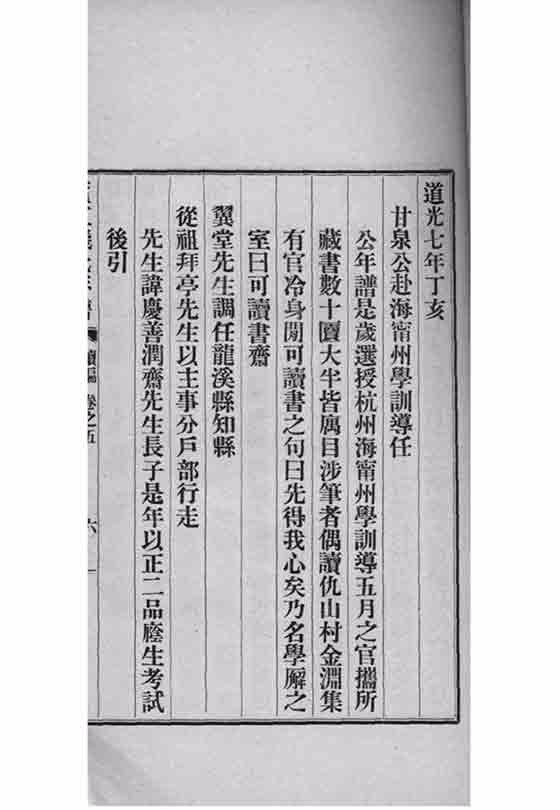 道光七年丁亥
甘泉公赴海甯州學訓導任
公年譜是歲選授杭州海甯州學訓導五月之官攜所
藏書數十匱大半皆厲目涉筆者偶讀仇山村金淵集
有官冷身閒可讀書之句曰先得我心矣乃名學廨之
室曰可讀書齋
翼堂先生調任龍溪縣知縣
從祖拜亭先生以主事分戶部行走
先生諱慶善潤齋先生長子是年以正二品廕生考試
後引
續編 卷之五 六